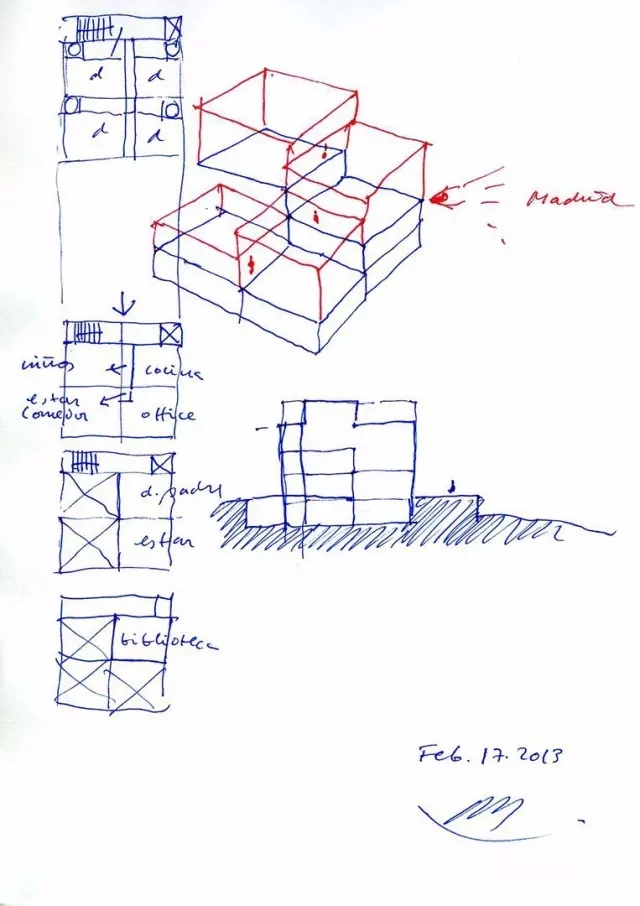 d d
d d
Madrid
niños cocina
estar
comedor office
d. padres
estar
biblioteca
Feb. 17. 2013